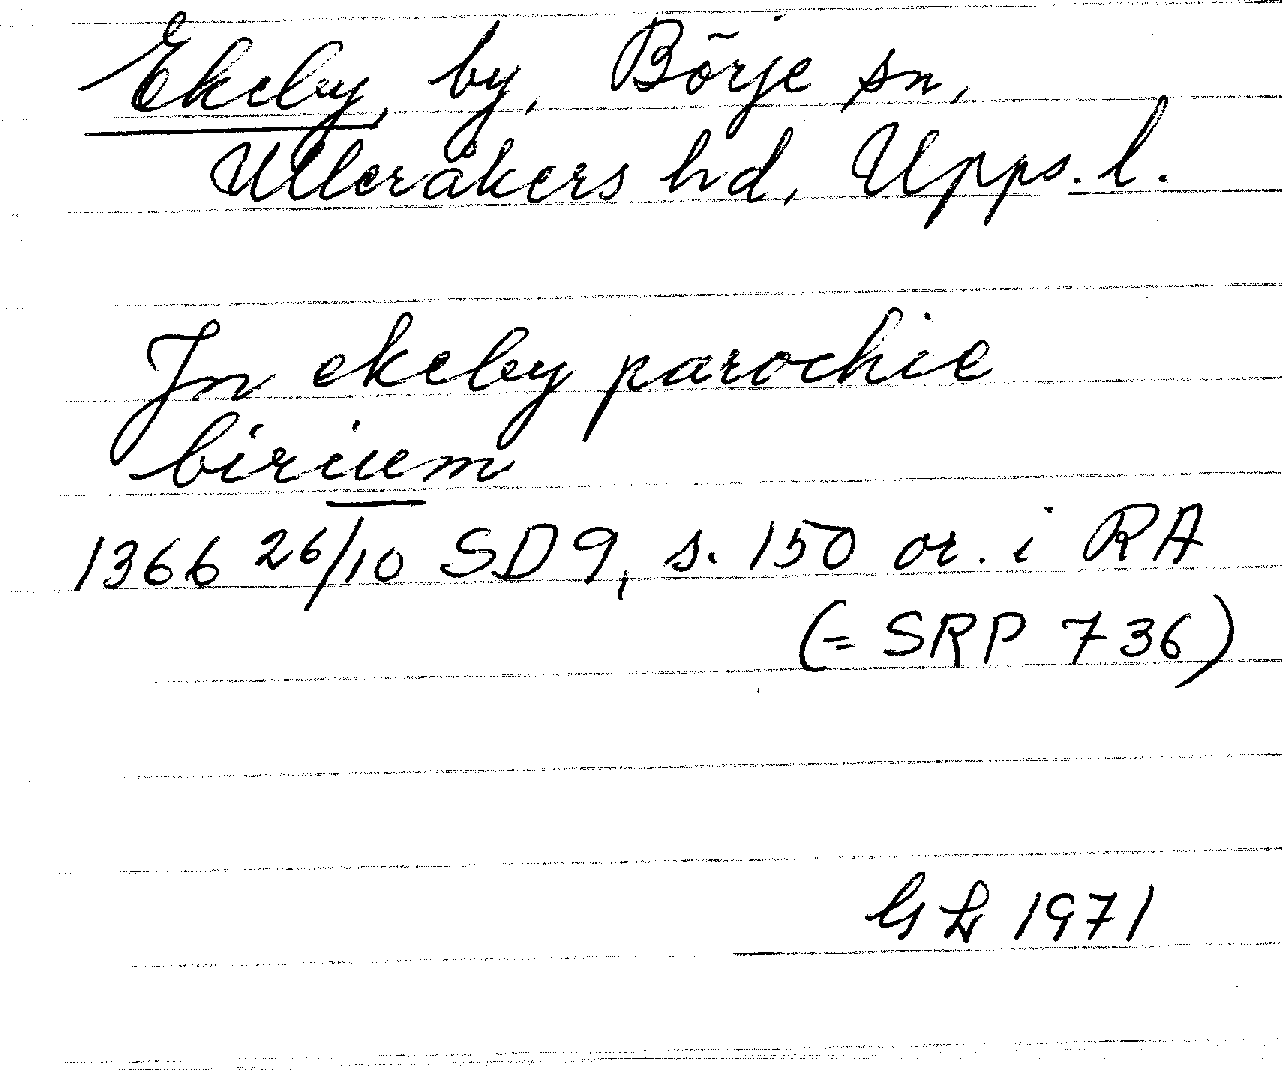 Ekeby, by, Börje sn,
Ulleråkers hd, Upps. l.
In ekeby parochie
birium
1366 26/10 SD9, s. 150 or. i RA
(= SRP 736)
GL 1971